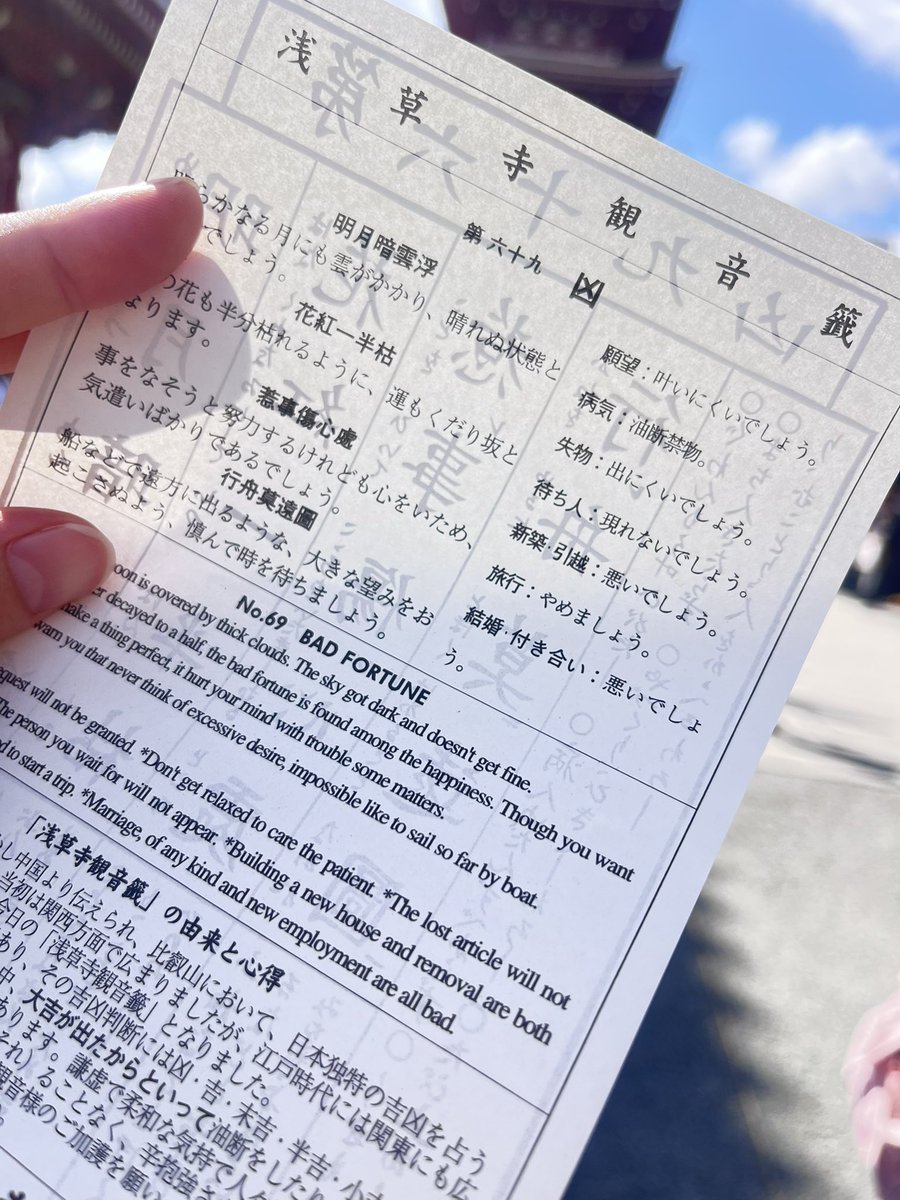 浅草寺観音籤
第六十九 凶
明月暗雲浮
らかなる月にも雲がかかり、晴れぬ状態と
でしょう。
花紅一半枯
の花も半分枯れるように、運もくだり坂と
よります。
惹事傷心處
事をなそうと努力するけれども心をいため、
気遣いばかりであるでしょう。
行舟莫遠圖
船などで遠方に出るような、大きな望みをお
起こさぬよう、慎んで時を待ちましょう。
願望：叶いにくいでしょう。
病気：油断禁物。
失物：出にくいでしょう。
待ち人：現れないでしょう。
新築・引越：悪いでしょう。
旅行：やめましょう。
結婚・付き合い：悪いでしょ
う。
No.69 BAD FORTUNE
oon is covered by thick clouds. The sky got dark and doesn't get fine.
er decayed to a half, the bad fortune is found among the happiness. Though you want
make a thing perfect, it hurt your mind with trouble some matters.
warn you that never think of excessive desire, impossible like to sail so far by boat.
quest will not be granted. *Don't get relaxed to care the patient. *The lost article will not
The person you wait for will not appear. *Building a new house and removal are both
d to start a trip. *Marriage, of any kind and new employment are all bad.
「浅草寺観音籤」の由来と心得
し中国より伝えられ、比叡山において、日本独特の吉凶を占う
当初は関西方面で広まりましたが、江戸時代には関東にも広
今日の「浅草寺観音籤」となりました。
あり、その吉凶判断には凶・吉・末吉・半吉・小吉
中、大吉が出たからといって油断をしたり
あります。謙虚で柔和な気持で人々
それ）ることなく、辛抱強さ
観音様のご加護を願い